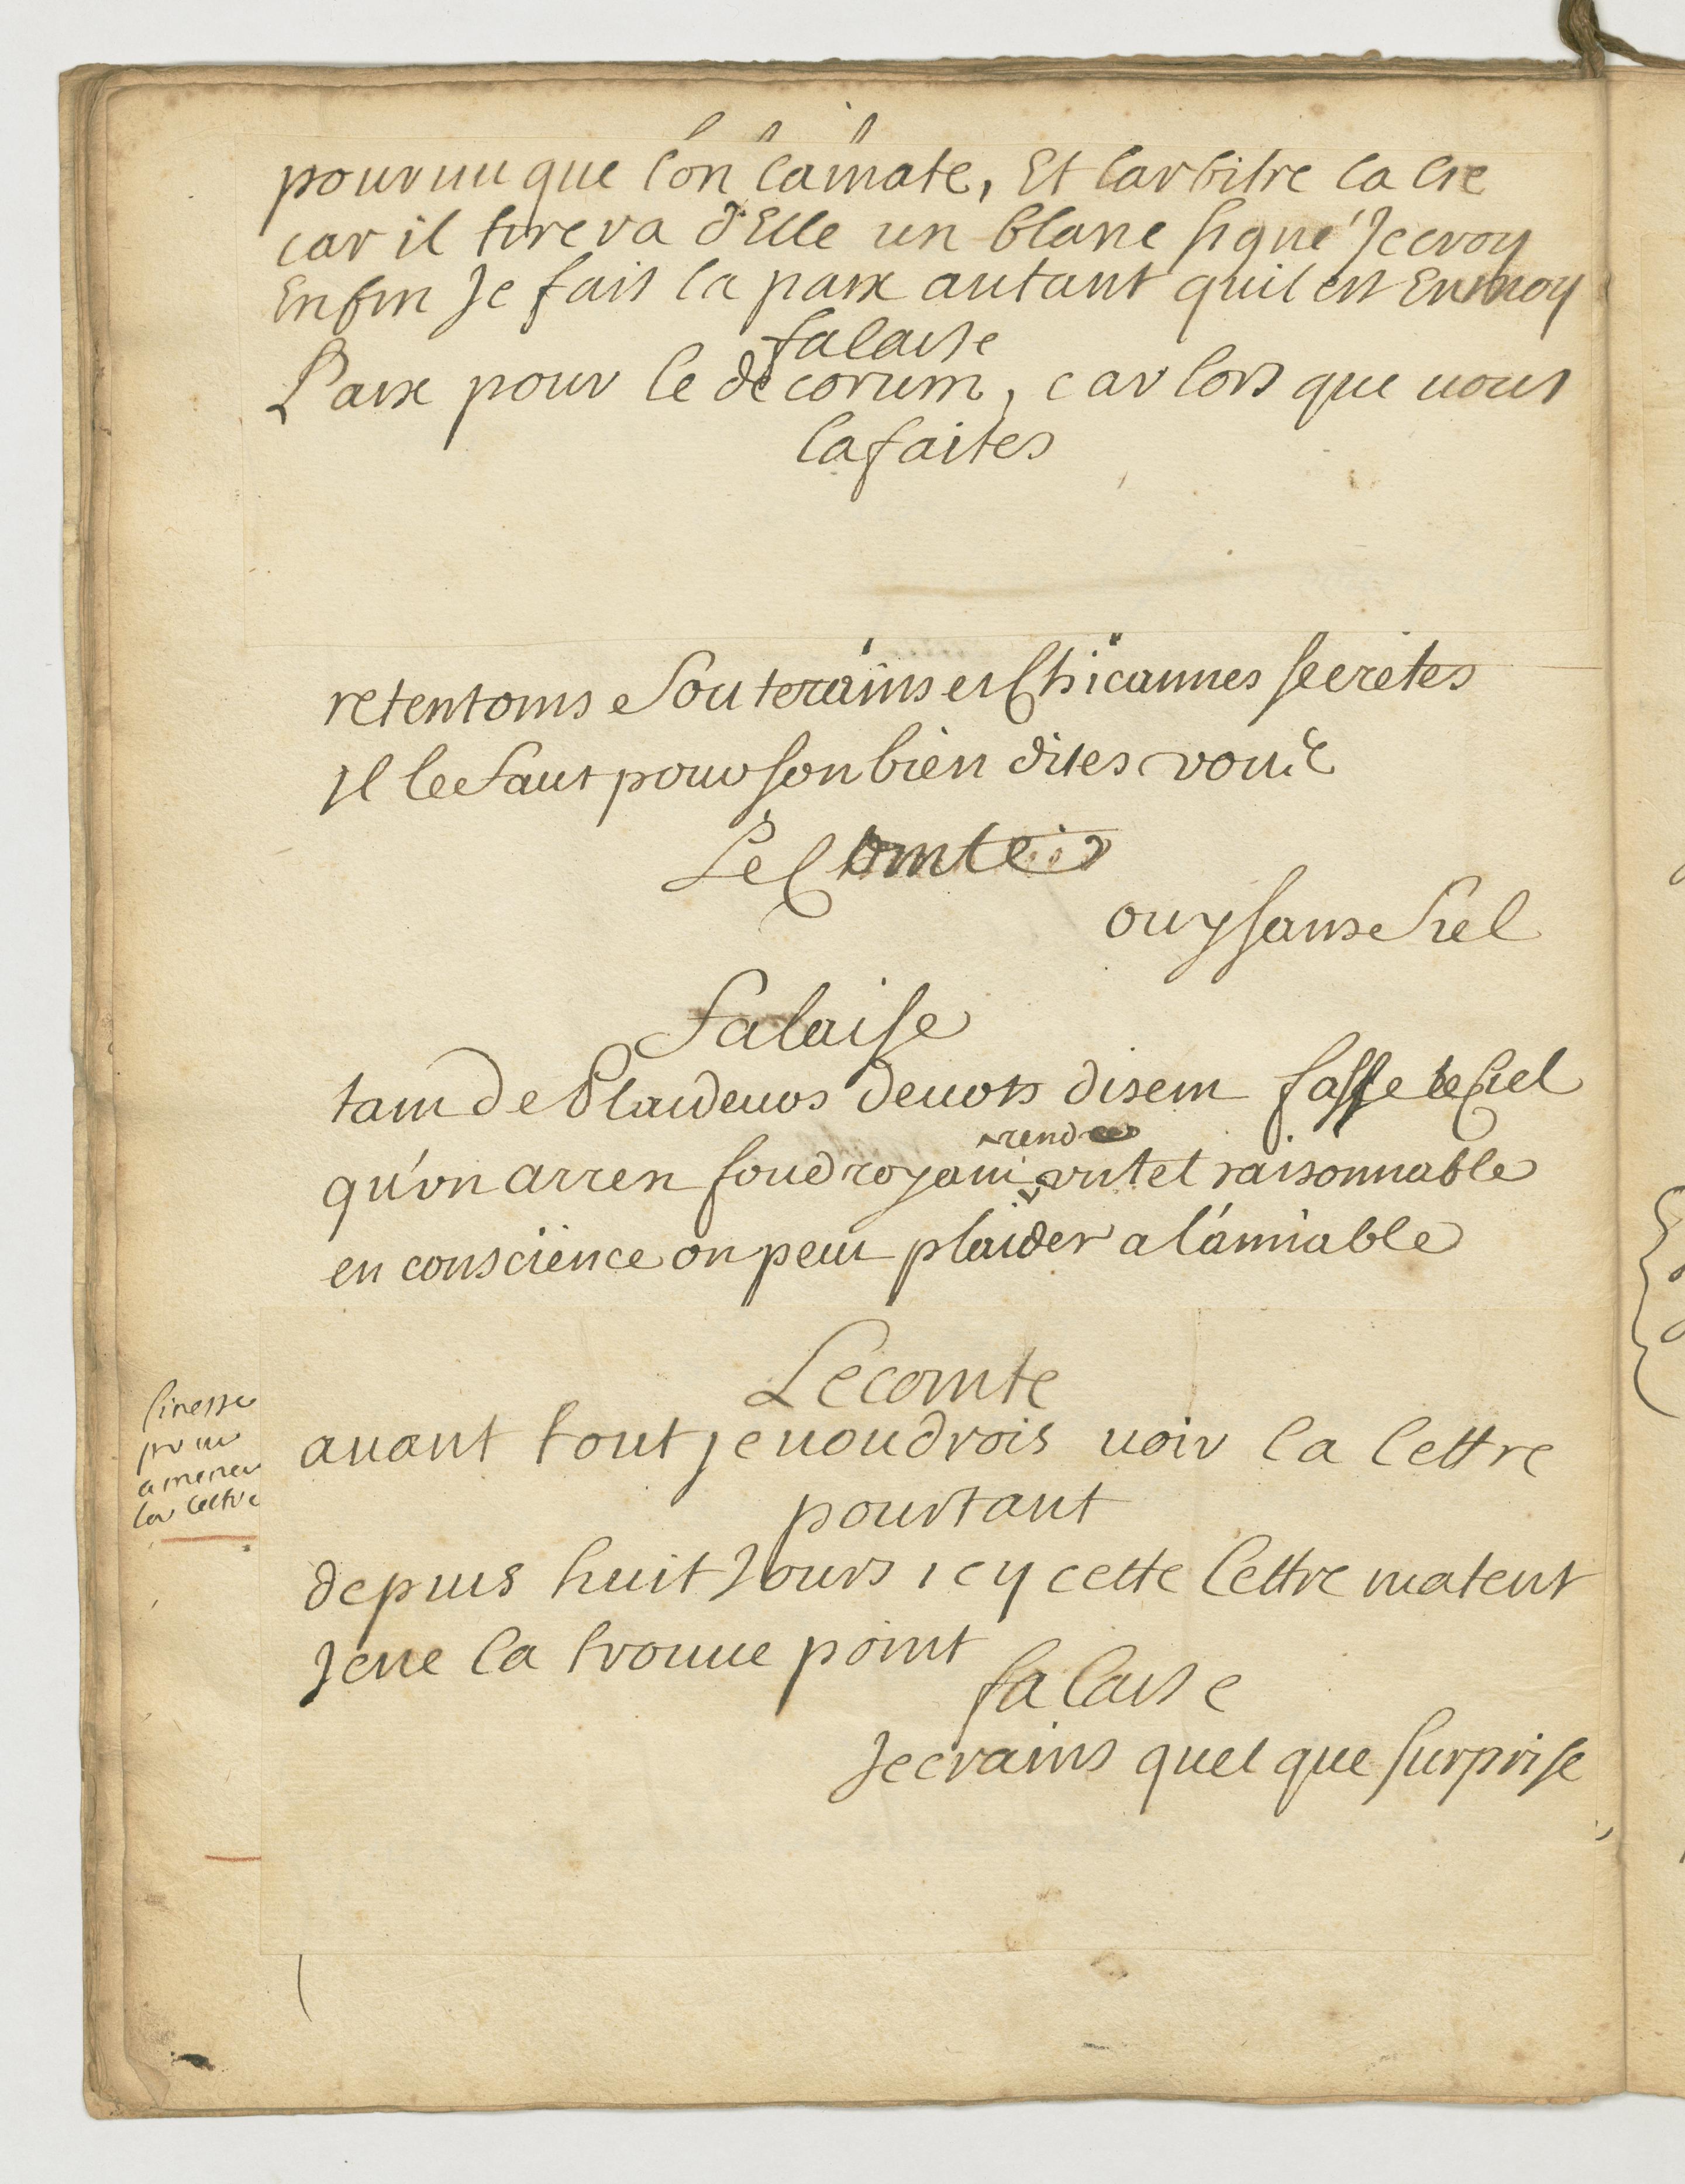 pourvu que l'on la mate, Et larbitre la lie
car il tirera d'Elle un blanc signé Je croy
Enfin Je fais la paix autant quil est En moy
falaise
Paix pour le decorum, car lors que vous
la faites
retentons Souterains et Chicannes secretes
Il le faut pour son bien dites vous
Le Comte
ouy sans fiel
falaise
tant de Plaideurs devots disent fasse le Ciel
qu'un arrest foudroyant rende
en conscience on peut plaider a l'amiable
Le comte
finesse
pour
amener
la lettre
avant tout je voudrois voir la lettre
pourtant
depuis huit Jours icy cette lettre matent
Je ne la trouve point
falaise
Je crains quel que surprise